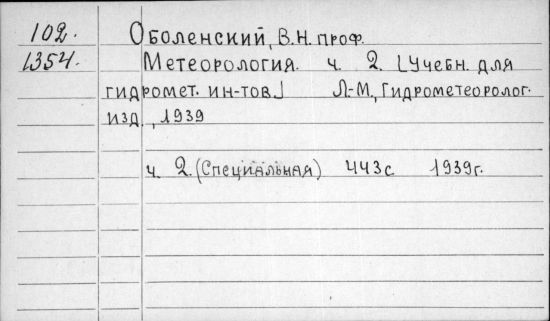 102. Оболенский, В.Н. проф.
1354. Метеорология. ч. 2. [Учебн. для
гидромет. ин-тов] Л.-М., Гидрометеоролог.
изд., 1939
ч. 2. (Специальная) 443с 1939г.